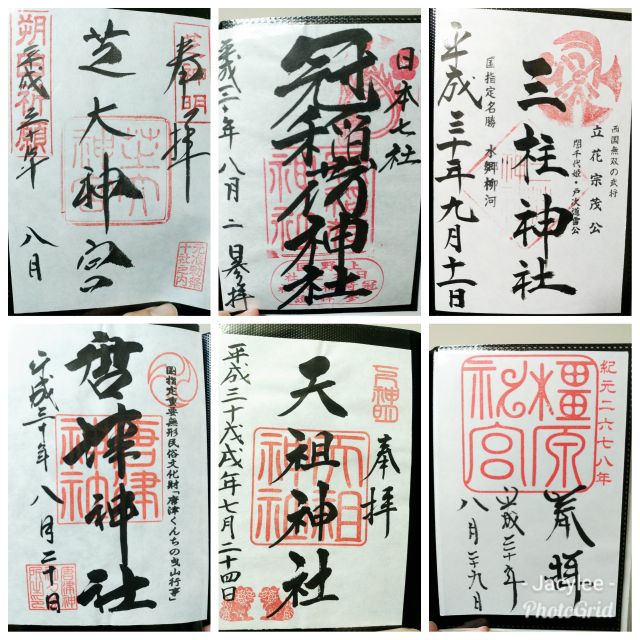 奉拝
芝大神宮
平成三十年
八月
朔日祈願
日本七社
冠稲荷神社
平成三〇年八月二日
参拝
西国無双の武将
立花宗茂公
誾千代姫・戸次道雪公
三柱神社
国指定名勝 水郷柳河
平成三十年九月十二日
国指定重要無形民俗文化財「唐津くんちの曳山行事」
唐津神社
唐津神社
平成三十年八月二十日
奉拝
天祖神社
平成三十戊戌年七月二十四日
紀元二六七八年
橿原神宮
奉拝
平成三十年
八月二十九日
- Jacylee -
PhotoGrid